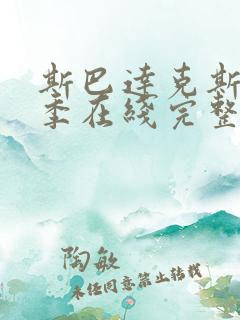 斯巴达克斯
季在线完整
陶敏
未经同意禁止转载